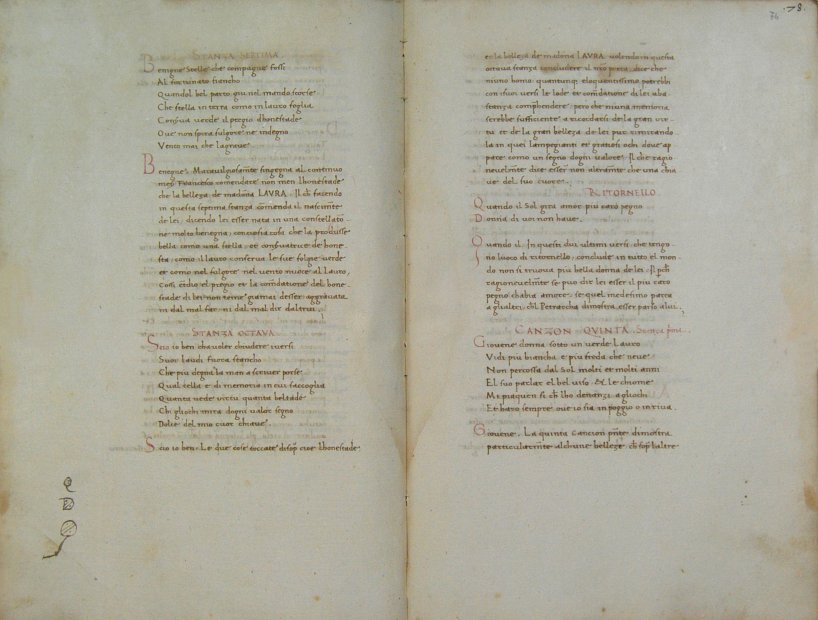 STANZA SEPTIMA
Benigne Stelle che compagne fossi
Al fortunato fiancho
Quandol bel parto giu nel mondo scorse
Che stella in terra como in lauro foglia
Conserva uerde il pregio dhonestade
Oue non spira fulgore ne indegno
Vento mai che lagraue
Benegne. Marauigliosamente singegna al continuo
mes Francesco comendare non men lhonestade
che la belleza de madonna LAVRA. Il che facendo
in questa septima stanza comenda il nascimento
de lei, dicendo lei esser nata in una constellatio-
ne molto benegna, conciosia cosa che la produsse
bella como una stella, et conseruatrice de hone-
sta, como il lauro conserua le sue foglie uerde
et como nel fulgore nel uento nuoce al Lauro,
Cosi etdio el pregio et la comdatione del hone-
stade di lei non teme giamai desser aggrauata
ni dal mal far ni dal mal dir daltrui
STANZA OCTAVA
Scio io ben cha uoler chiudere inersi
Suoe laudi fuora stancho
Che piu degna la man a scriuer porse
Qual cella e di memoria in cui saccoglia
Quanta uede uirtu quanta beltade
Chi gliochi mira dogni ualor segno
Dolce del mio cuor chiaue
Scio io ben. Le due cose toccate disopra cioe lhonestade
.78.
et la belleza de madonna LAVRA uolendo in questa
octaua stanza concludere il nostro poeta, dice che
niuno homo quantunque eloquentissimo potrebbi
con i suoi uersi le lode et comdatione di lei in una
stanza comprehendere pero che niuna memoria
serebbe sufficiente a ricordarsi de la gran uir-
tu et de la gran belleza de lei pur rimirando
la in quei lampegianti et gratiosi ochi doue ap
pare como un segno dogni ualore. Il che ragio
neuelmente dice esser non altramente che una chia
ue del suo cuore.
RITORNELLO
Quando il Sol gira amor piu caro pegno
Donna di uoi non haue.
Quando il. In questi dui ultimi uersi che tengo-
no luoco di ritornello, conclude in tutto el mon-
do non si truoua piu bella donna de lei. Il perche
ragioneuelmente se puo dir lei esser il piu caro
pegno chabia amore. se quel medesimo parea
a gli altri, chel Petrarcha dimostra esser parso a lui.
CANZON QVINTA
Giouene donna sotto un uerde Lauro
Vidi piu biancha e piu freda che neue
Non percossa dal Sol molti et molti anni
El suo parlar el bel uiso & le chiome
Me piaquen si che lho denanzi agliochi
Et haro sempre oue io sia in poggio o in riua.
Giouene. La quinta cancion presente dimostra
particularmente alchune belleze che sopra laltre